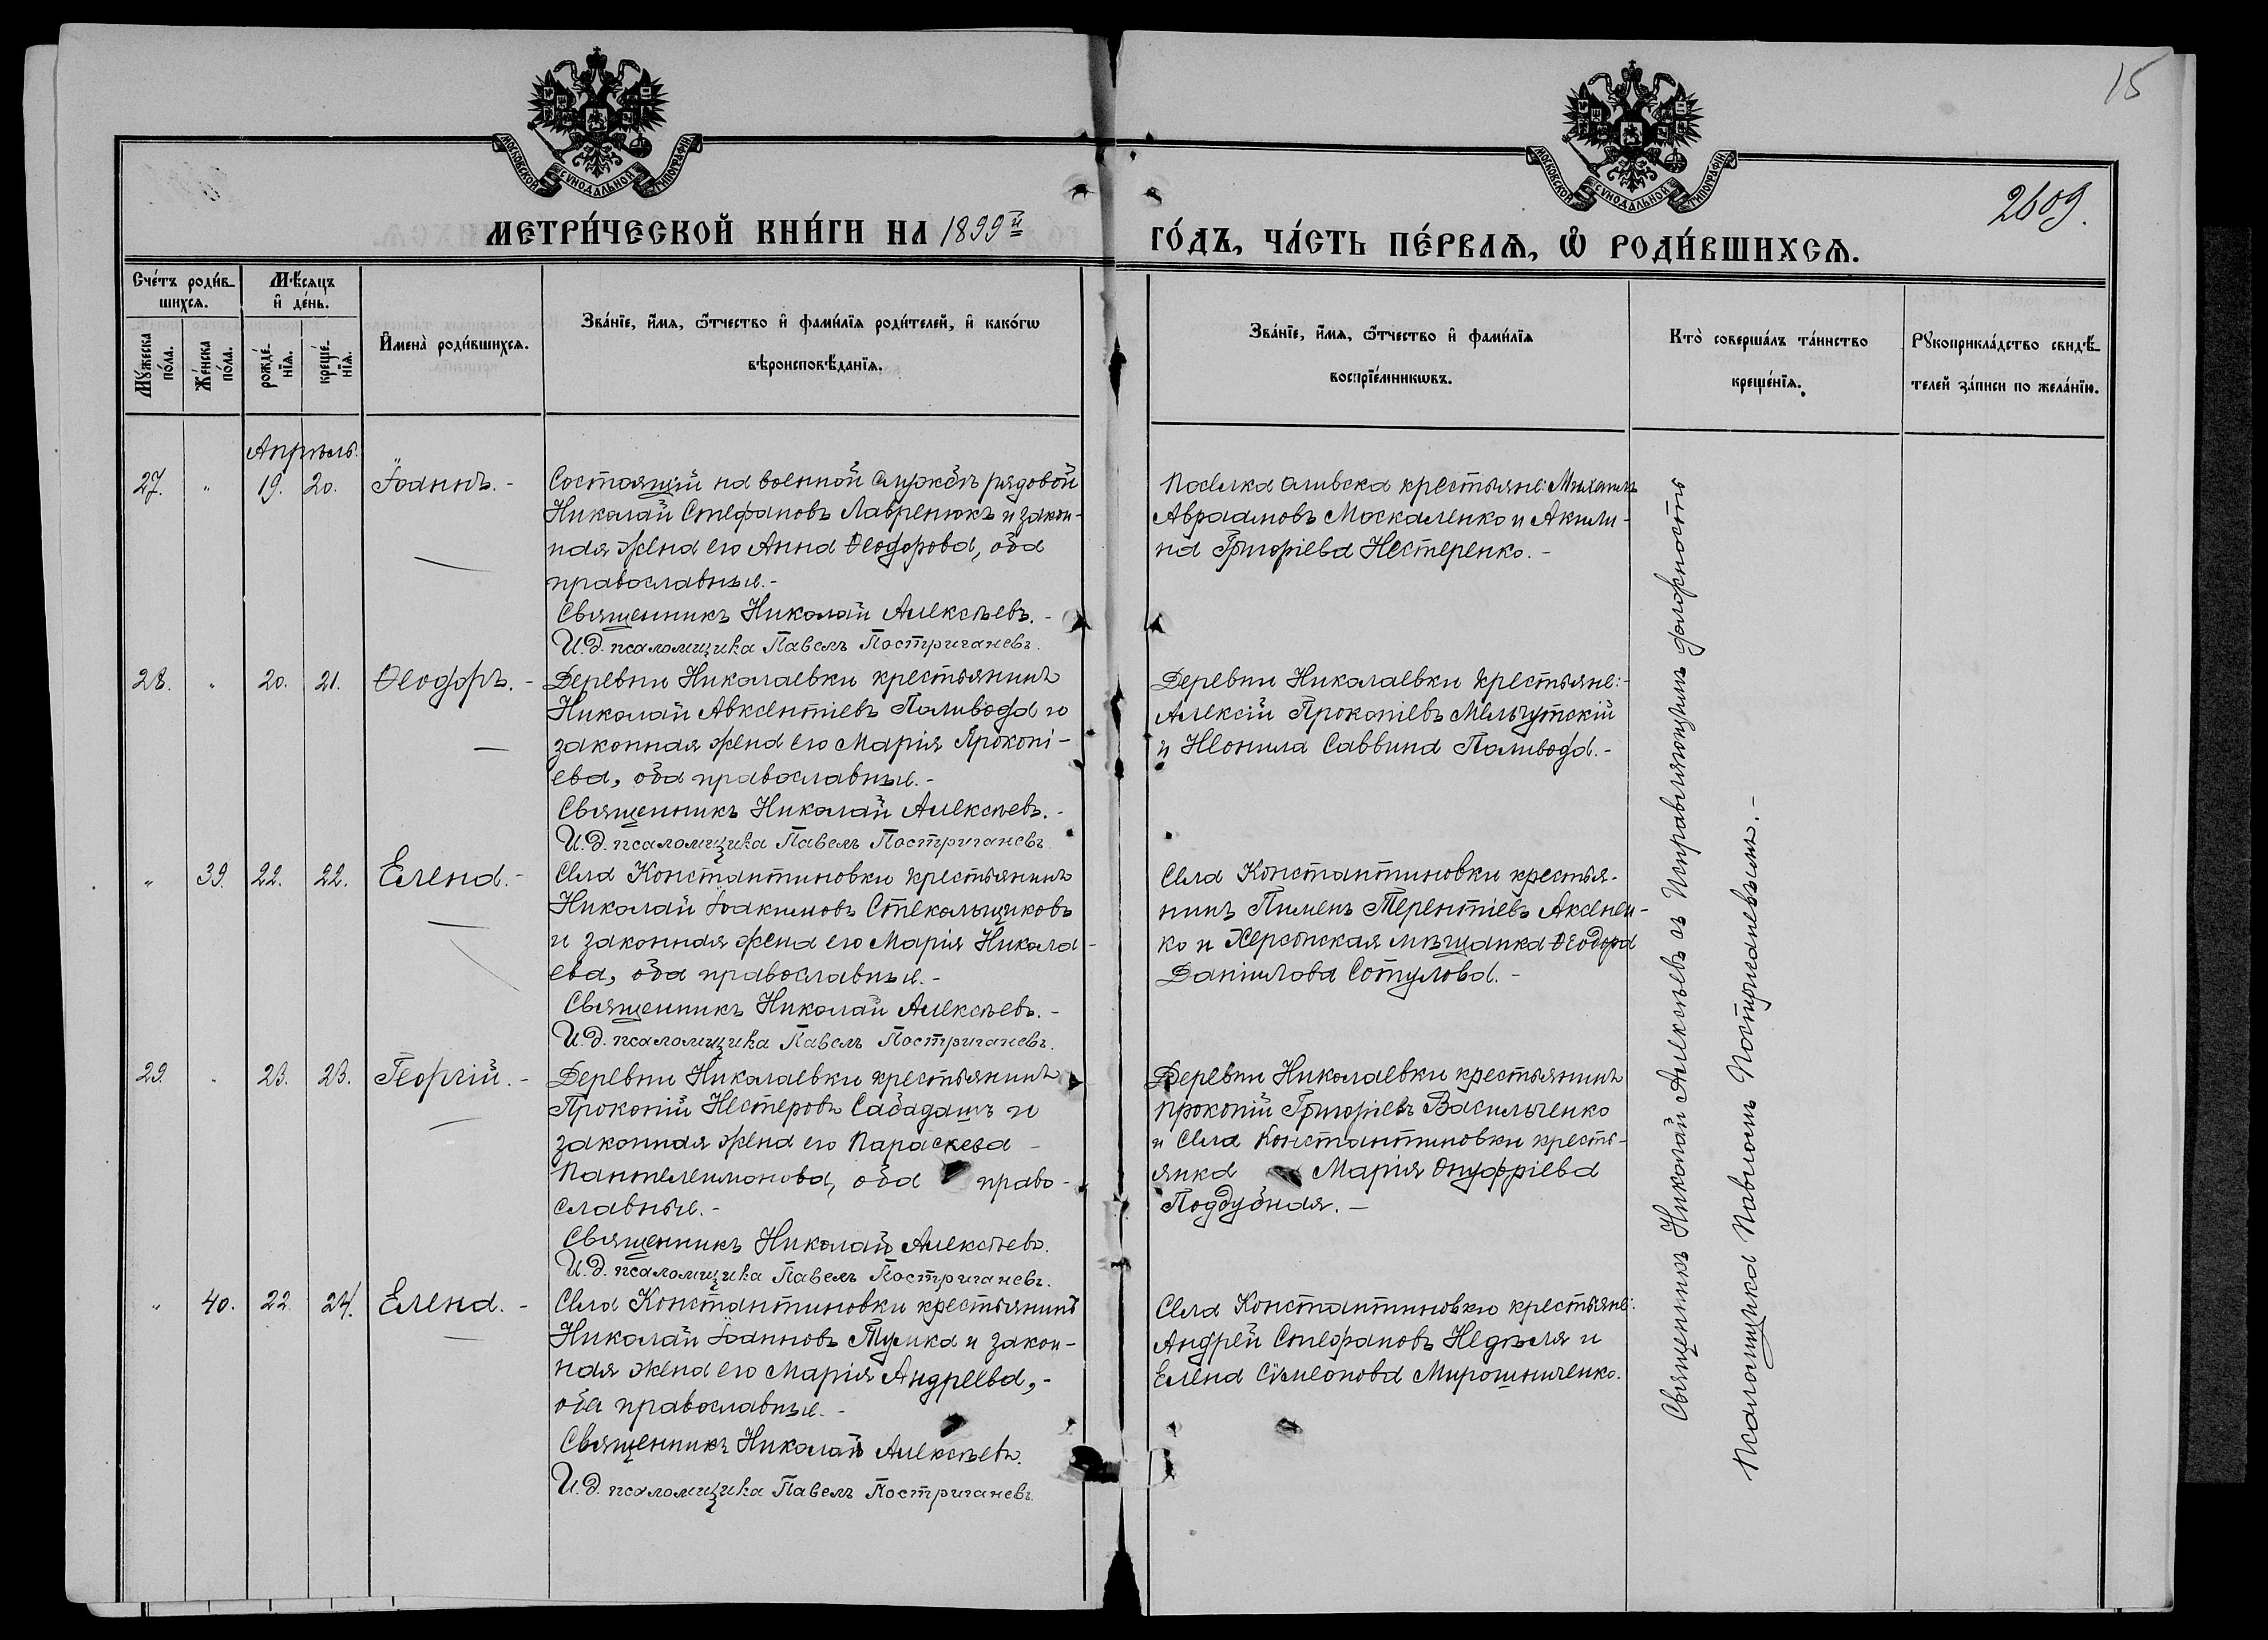 15
2609.
МОСКОВСКОЙ СѴНОДАЛЬНОЙ ТИПОГРАФІИ
МОСКОВСКОЙ СѴНОДАЛЬНОЙ ТИПОГРАФІИ
МЕТРИ́ЧЕСКОЙ КНИ́ГИ НА 1899й
ГО́ДЪ, ЧА́СТЬ ПЕ́РВАѦ, Ѽ РОДИ́ВШИХСѦ.
Сче́тъ роди́в-
шихсѧ.
Мꙋ́жеска
по́ла.
Же́нска
по́ла.
Мѣ́сѧцъ
и҆ де́нь.
рожде́-
нїѧ.
креще́-
нїѧ.
И҆мена̀ роди́вшихсѧ.
Зва́нїе, и҆́мѧ, ѻ҆́тчество и҆ фами́лїѧ роди́телей, и҆ како́гѡ
вѣроисповѣ́данїѧ.
Зва́нїе, и҆́мѧ, ѻ҆́тчество и҆ фами́лїѧ
воспрїе́мникѡвъ.
Кто̀ соверша́лъ та́инство
креще́нїѧ.
Рꙋкоприкла́дство свидѣ́-
телей за́писи по жела́нїю.
Апрѣль.
27. " 19. 20. Іоаннъ.-
Состоящій на военной службѣ рядовой
Николай Стефановъ Лавренюкъ и закон-
ная жена его Анна Ѳеодорова, оба
православные.-
Священникъ Николай Алексѣевъ.-
И.д. псаломщика Павелъ Постриганевъ.
Поселка крестьяне: Михаилъ
Авраамовъ Москаленко и Акили-
на Григоріева Нестеренко.-
28. " 20. 21. Ѳеодоръ.-
Деревни Николаевки крестьянинъ
Николай Авксентіевъ Паливода и
законная жена его Марія Прокопі-
ева, оба православные.-
Священникъ Николай Алексѣевъ.-
И.д. псаломщика Павелъ Постриганевъ.
Деревни Николаевки крестьяне:-
Алексій Прокопіевъ Мельгутскій
и Неонила Саввина Паливода.-
" 39. 22. 22. Елена.-
Села Константиновки крестьянинъ
Николай Іоакимовъ Стекольщиковъ
и законная жена его Марія Никола-
ева, оба православные.-
Священникъ Николай Алексѣевъ.-
И.д. псаломщика Павелъ Постриганевъ.
Села Константиновки крестья-
нинъ Пименъ Терентіевъ Аксенен-
ко и Херсонская мѣщанка Ѳеодора
Даніилова Сотулова.-
29. " 23. 23. Георгій.-
Деревни Николаевки крестьянинъ
Прокопій Нестеровъ Сабадашъ и
законная жена его Параскева -
Пантелеимонова, оба право-
славные.-
Священникъ Николай Алексѣевъ.
И.д. псаломщика Павелъ Постриганевъ.
Деревни Николаевки крестьянинъ
Прокопій Григоріевъ Васильченко
и Села Константиновки кресть-
янка Марія Онуфріева
Поддубная.-
" 40. 22. 24. Елена.-
Села Константиновки крестьянинъ
Николай Іоанновъ Тумка и закон-
ная жена его Марія Андреева,-
оба православные.-
Священникъ Николай Алексѣевъ.
И.д. псаломщика Павелъ Постриганевъ.
Села Константиновки крестьяне:
Андрей Стефановъ Недѣля и
Елена Сѵмеонова Мирошниченко.
Священникъ Николай Алексѣевъ съ Исправляющимъ должность
Псаломщика Павломъ Постриганевымъ.-